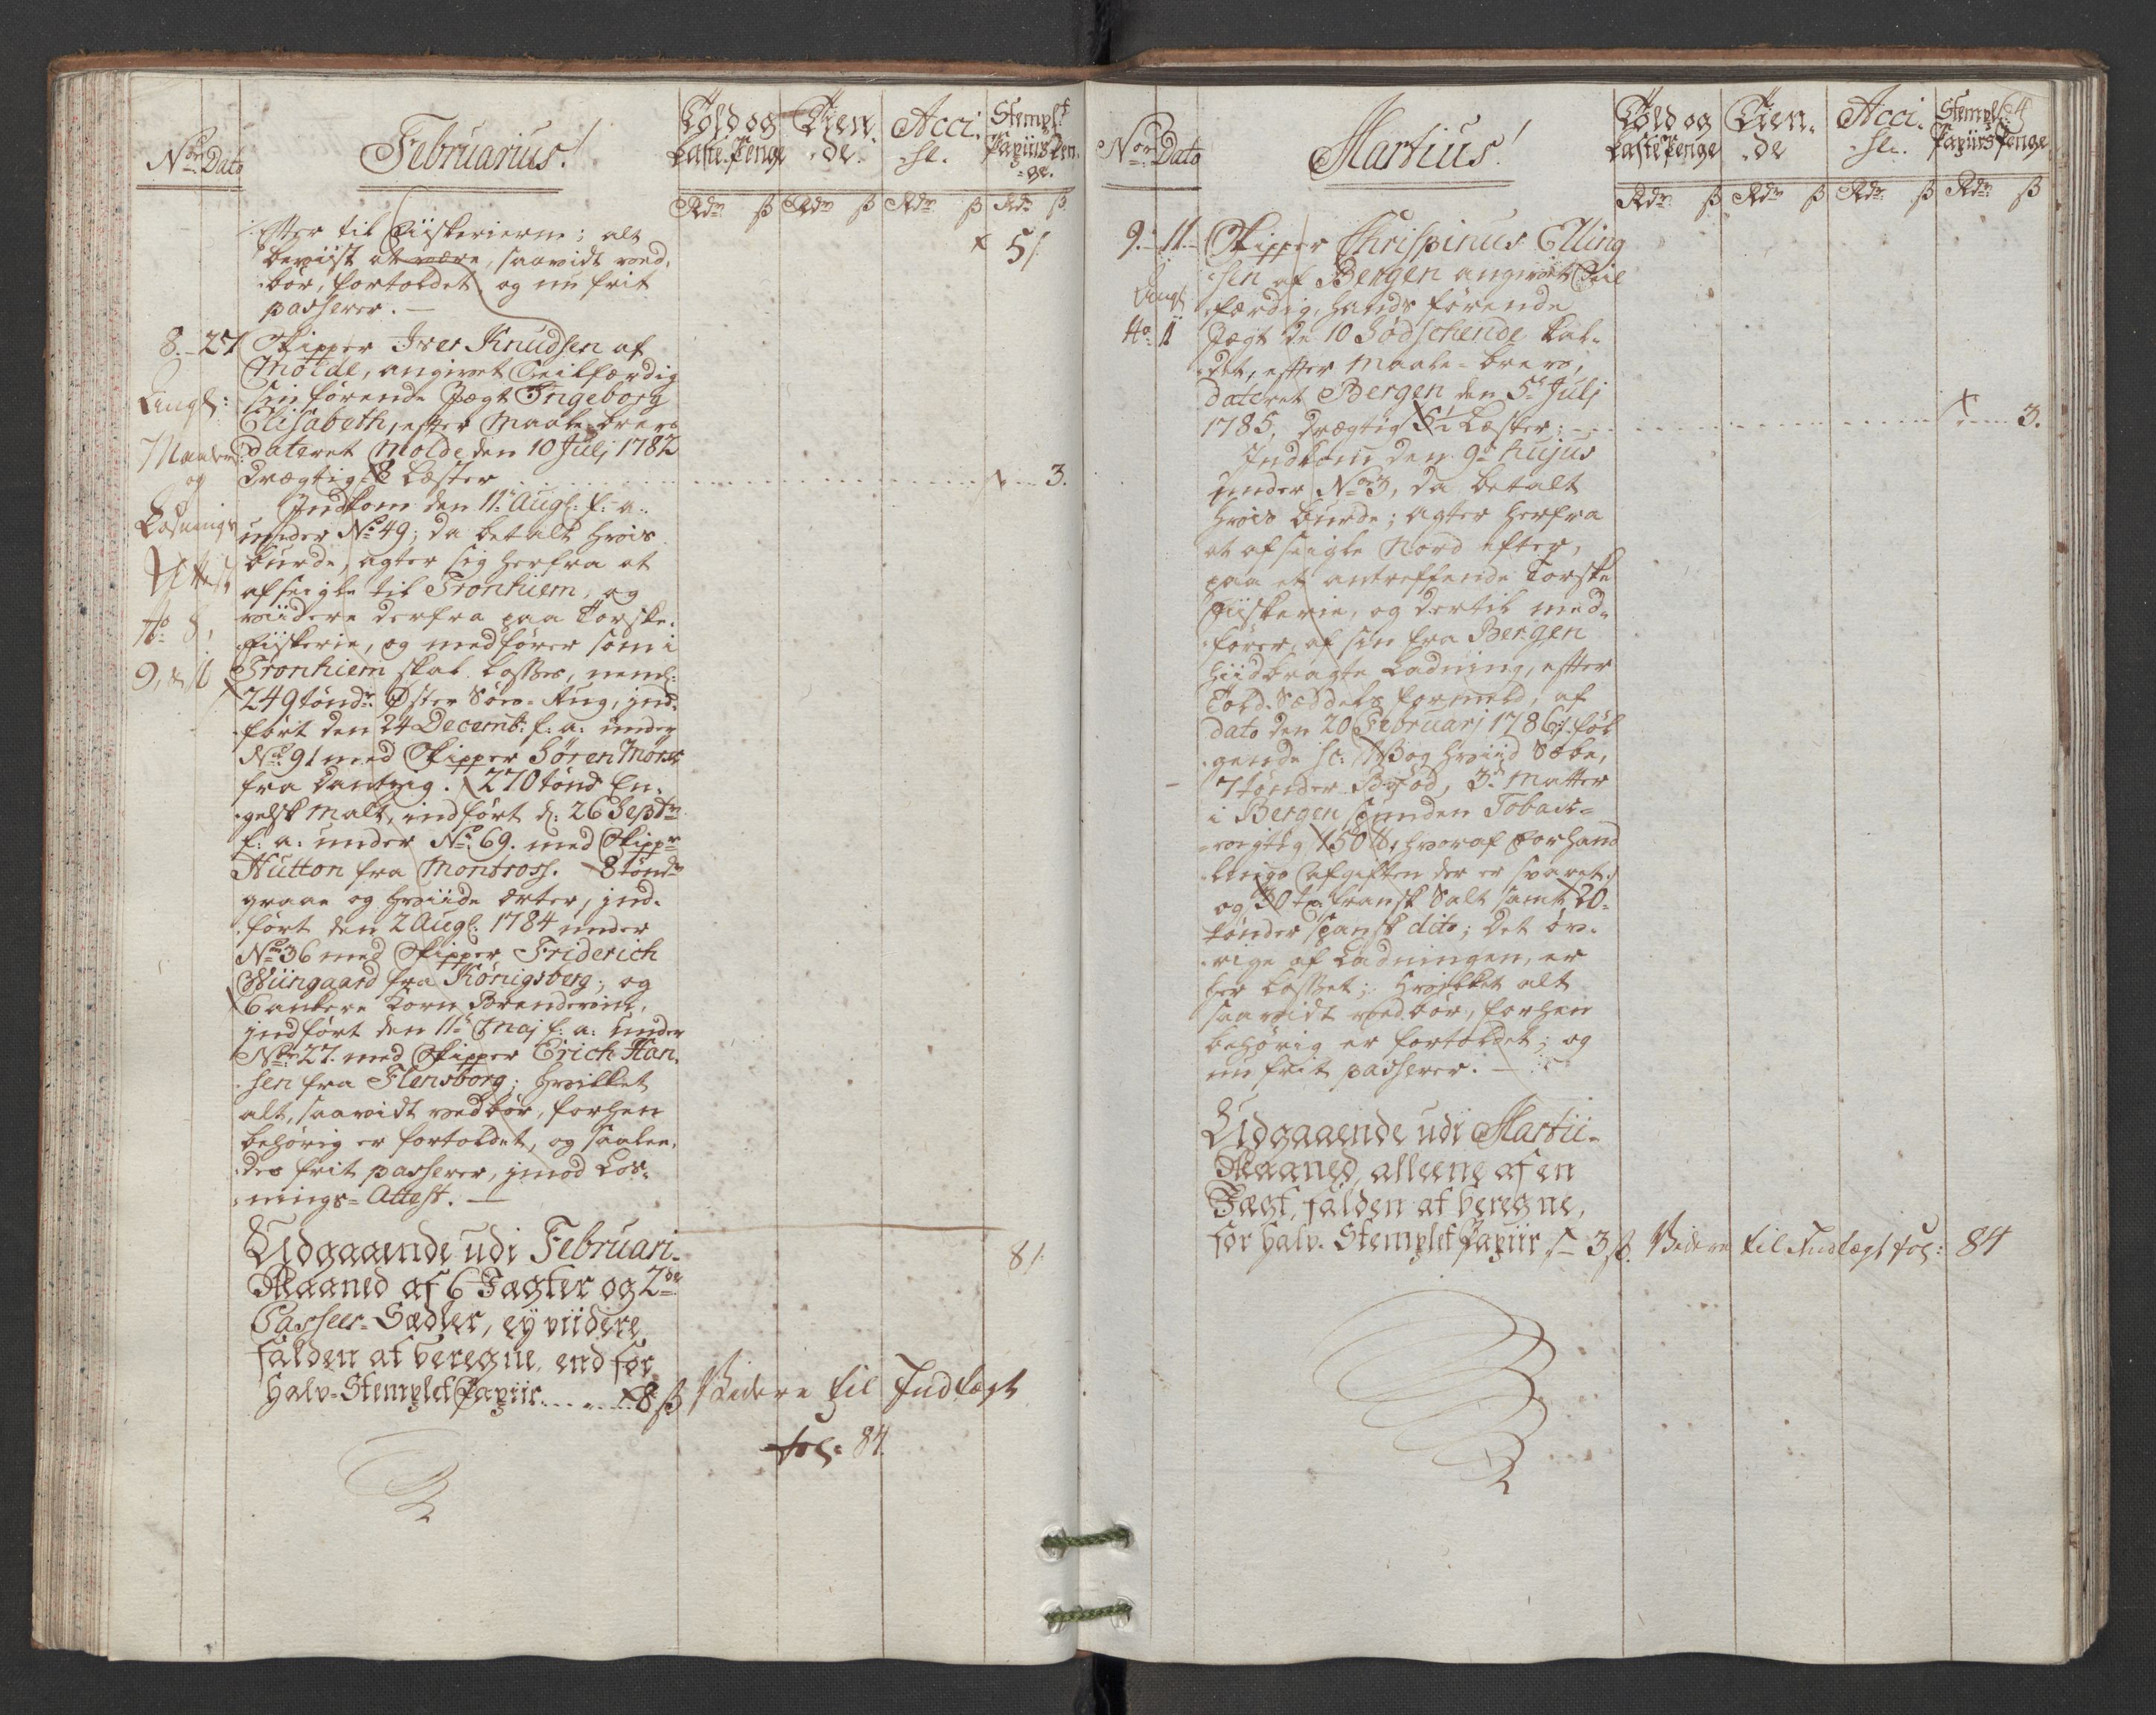 Nor Dato
Februarius!
Told og
Laste-Penge
Tien-
de.
Acci-
se.
Stempl:
Papiirs Pen-
ge.
Rdr ß Rdr ß Rdr ß Rdr ß
efter til Fiiskerierne; alt
beviist at være, saavidt ved-
bør, fortoldet, og nu frit
passerer. —
5/
8. 27 Skipper Iver Knudsen af
Molde, angivet Seilfærdig
sin førende Jægt Ingeborg
Elisabeth, efter Maale-brev
dateret Molde den 10 Julj 1782
drægtig 8 Læster
3.
Indkom den 11te Augs: f: a:
under No 49; da betalt hvis
burde, agter sig herfra at
afseigle til Tronhiem, og
viidere derfra paa Torske-
Fiskerie, og medfører som i
Tronhiem skal losses, neml:
249 tøndr Øster Søes-Rug, ind-
ført den 24 Decemb: f: a: under
No 91 med Skipper Søren Mører
fra Dantzig. 270 tøndr En-
gelsk Malt, indført d: 26 Septr
f: a: under No 69. med Skippr
Hutton fra Montross. 8 tøndr
graae og hviide Erter, ind-
ført den 2 Augs: 1784 under
No 36 med Skipper Friderich
Wiingaard fra Königsberg; og
6 Ankere Korn Brændeviin,
indført den 11te Maj f: a: under
No 27. med Skipper Erich Han-
sen fra Flensborg; hvilket
alt, saavidt vedbør, forhen
behørig er fortoldet, og saalæ-
des frit passerer, imod Los-
nings-Attest. —
og
Losnings
Attest
No 8,
Udgaaende udi Februari-
Maaned af 6 Jagter og 2de
Passeer-Sædler, ey viidere
falden at beregne, end for
Halv-Stemplet Papiir 8 ß
8/
Videre til Indtægt
fol: 84.
Nor Dato
Martius!
Told og
Laste Penge
Tien-
de
Acci-
se.
Stempl:
Papiirs Penge
Rdr ß Rdr ß Rdr ß Rdr ß
9. 11. Skipper Chrispinus Elling
sen af Bergen angivet Seil
færdig, hands førende
Jægt de 10 Sødschende kal-
det, efter Maale-brev,
dateret Bergen den 5te Julj
1785, drægtig 5½ Læster
3.
Indkom den 9de hujus
under No 3, da betalt
hvis burde; agter herfra
at afseigle Nord efter,
paa et antreffende Torske
Fiiskerie, og dertil med-
fører, af sin fra Bergen
hiidbragte Ladning, efter
Told-Sæddels formeld, af
dato den 20 Februarj 1786 føl
gende
7 tønder Brød, 3de Matter
i Bergen spunden Tobak
vigtig 150 hvoraf Forhand
lings Afgiften der er svaret
og 30 tr fransk Salt samt 20
tønder spansk dito; Det øv-
rige af Ladningen, er
her losset; hvilket alt
saavidt vedbør, forhen
behørig er fortoldet; og
nu frit passerer. —
Udgaaende udi Martii-
Maaned, alleene af en
Jægt, falden at beregne,
for Halv-Stemplet Papiir 3 ß. Videre til Indtægt fol: 84